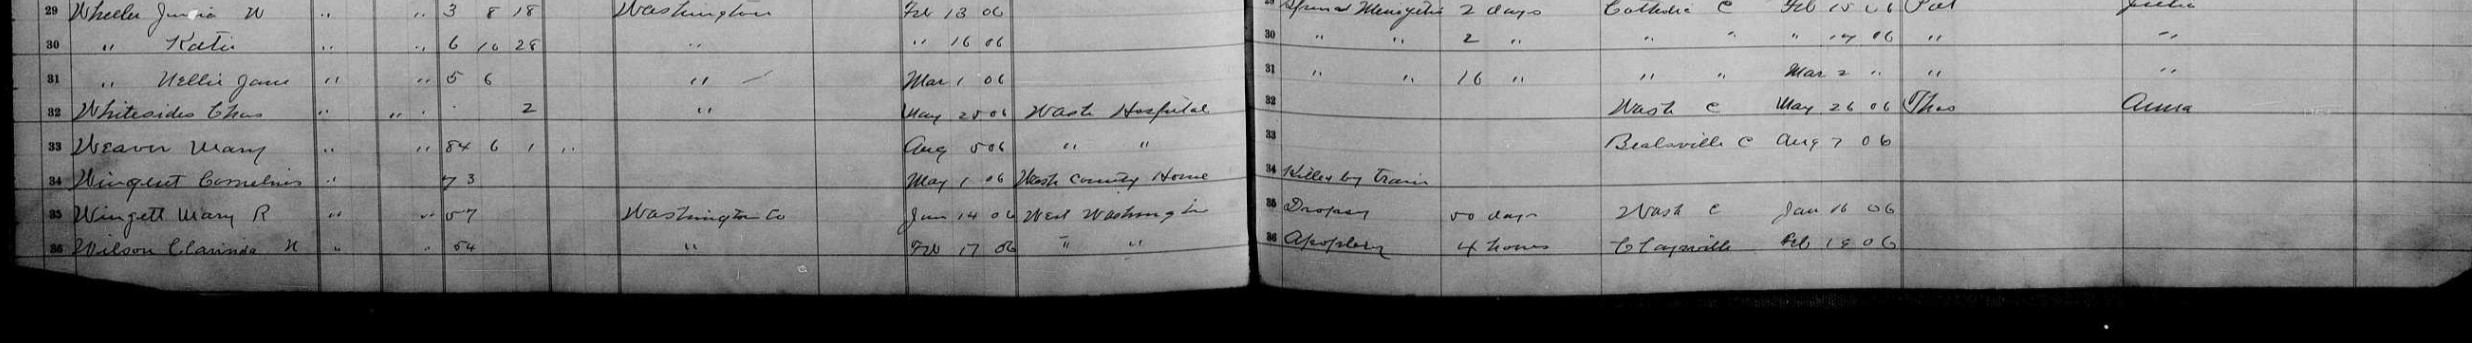 29 Wheeler Junia W " " 3 8 18 Washington Feb 13 06 Spinal Mengetis 2 days Catholic C Feb 15 06 Pat Julia
30 " Katie " " 6 10 28 " " 16 06 30 " " 2 " " " " 17 06 " "
31 " Nellie Jane " " 5 6 " Mar 1 06 31 " " 16 " " " Mar 2 " " "
32 Whitesides Chas " " " 2 " May 25 06 Wash Hospital 32 Wash C May 26 06 Thos Anna
33 Weaver Mary " " 84 6 1 " Aug 5 06 " " 33 Bealsville C Aug 7 06
34 Wingert Cornelius " 73 May 1 06 Wash County Home 34 Killed by train
35 Wingett Mary R " " 57 Washington Co Jan 14 06 West Washington 35 Dropsy 50 days Wash C Jan 16 06
36 Wilson Clarinda N " " 54 " Feb 17 06 " " 36 Apoplexy 4 hours Claysville Feb 19 06